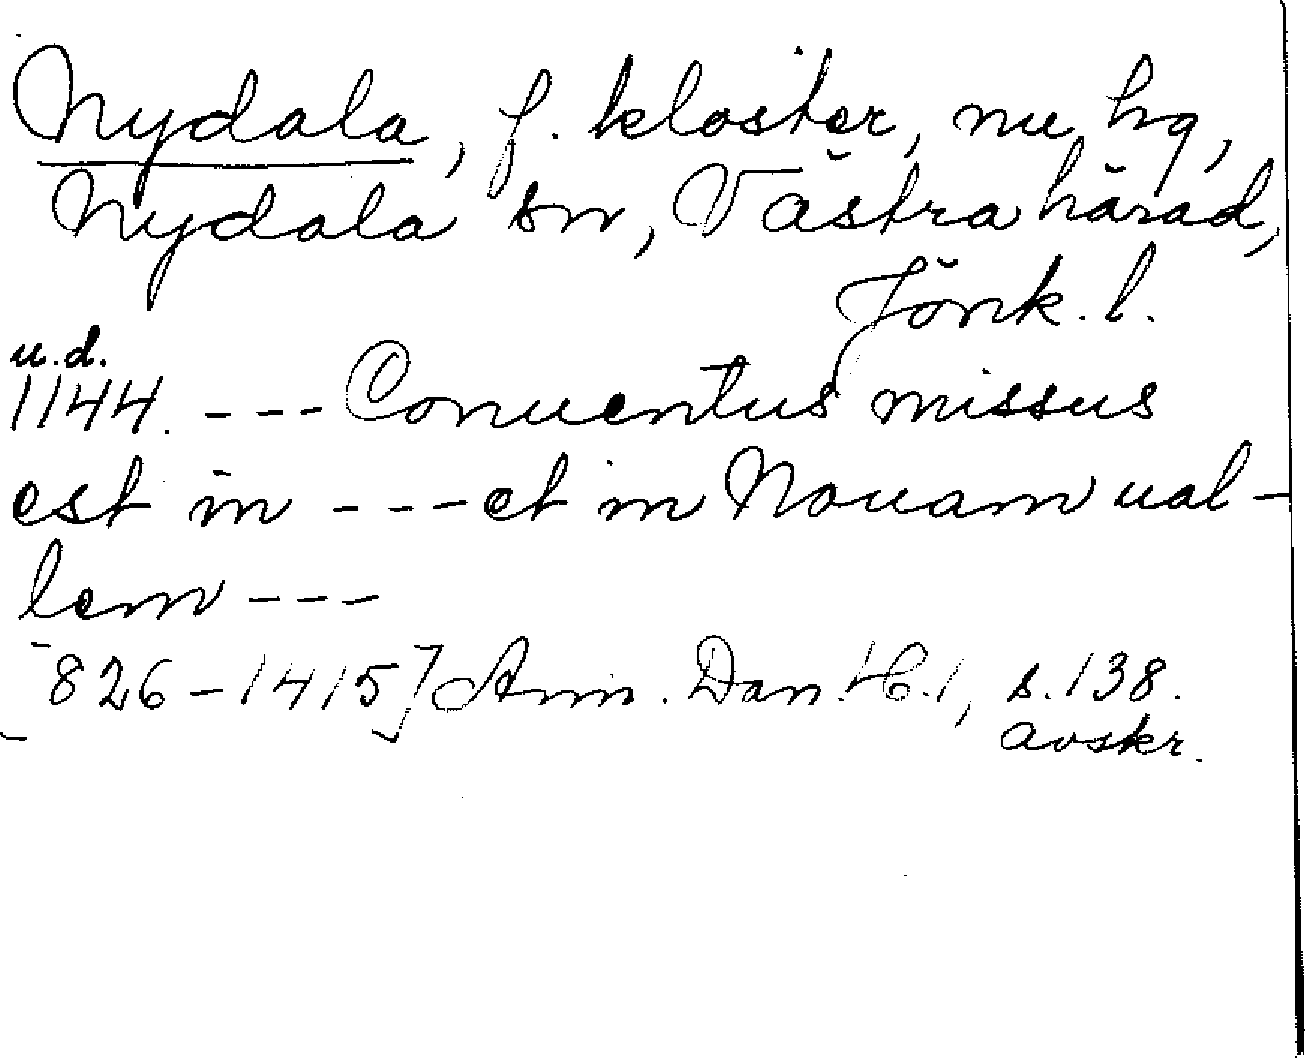 Nydala, f. kloster, nu hg,
Nydala sn, Västra härad,
Jönk. l.
u.d.
1144. --- Conuentus missus
est in --- et in Nouam ual-
lem ---
[826-1415] Ann. Dan. H. 1, s. 138.
avskr.